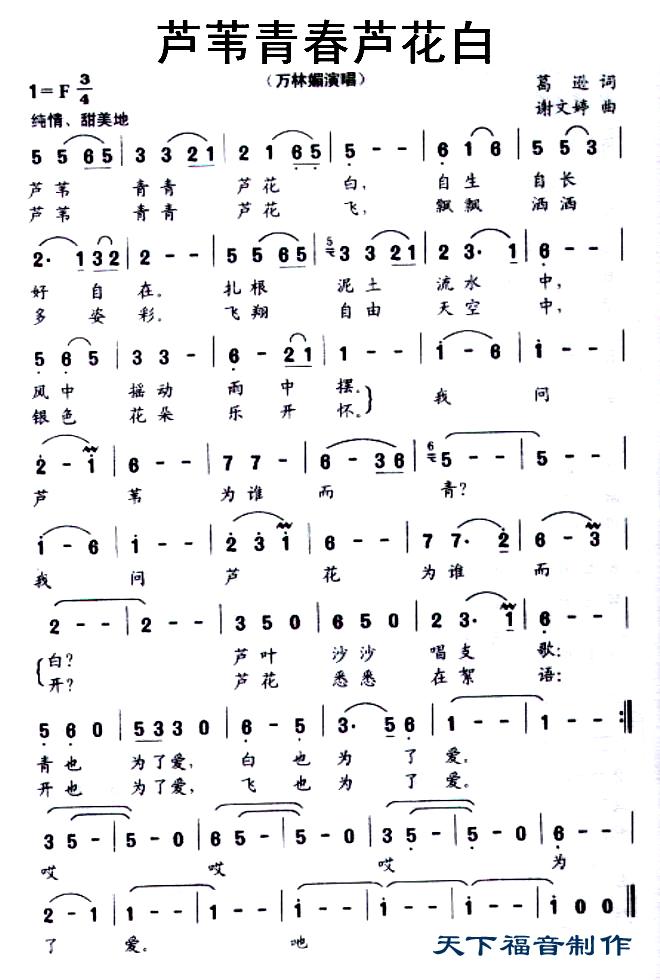 芦苇青春芦花白
(万林媚演唱)
1=F 3/4
葛逊 词
纯情、甜美地
谢文婷 曲
5 5 6 5 | 3 3 2 1 | 2 1 6 5 | 5 - - | 6 1 6 | 5 5 3 |
芦苇 青青 芦花 白, 自生 自长
芦苇 青青 芦花 飞, 飘飘 洒洒
2· 1 3 2 | 2 - - | 5 5 6 5 | 5 3 3 2 1 | 2 3· 1 | 6 - - |
好自在。 扎根 泥土 流水 中,
多姿彩。 飞翔 自由 天空 中,
5 6 5 | 3 3 - | 6 - 2 1 | 1 - - | i - 6 | i - - |
风中 摇动 雨中 摆。 我 问
银色 花朵 乐开 怀。
2 - i | 6 - - | 7 7 - | 6 - 3 6 | 6 5 - - | 5 - - |
芦 苇 为谁 而 青?
i - 6 | i - - | 2 3 i | 6 - - | 7 7· 2 | 6 - 3 |
我 问 芦 花 为谁 而
2 - - | 2 - - | 3 5 0 | 6 5 0 | 2 3· 1 | 6 - - |
白? 芦叶 沙沙 唱支 歌:
开? 芦花 悉悉 在絮 语:
5 6 0 | 5 3 3 0 | 6 - 5 | 3· 5 6 | 1 - - | 1 - - :|
青也 为了爱, 白也为了爱。
开也 为了爱, 飞也为了爱。
3 5 - | 5 - - | 5 - 0 | 6 2 - | 2 - 0 | 3 5 - | 5 - 0 | 6 - - |
哎 哎 哎 为
2 - 1 | 1 - - | 1 - - | i - - | i - - | i - - | i - 0 ‖
了 爱。 吔
天下福音制作